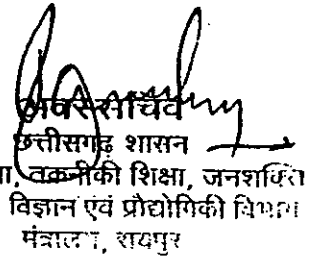 अवर सचिव
छत्तीसगढ़ शासन
तकनीकी शिक्षा, जनशक्ति
विज्ञान एवं प्रौद्योगिकी विभाग
मंत्रालय, रायपुर